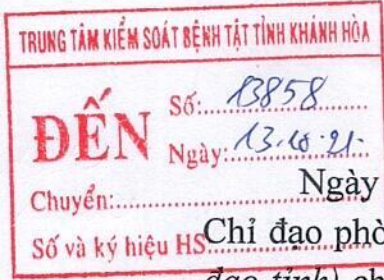 TRUNG TÂM KIỂM SOÁT BỆNH TẬT TỈNH KHÁNH HÒA
ĐẾN
Số:.....13858.....
Ngày:.13.10.21.
Chuyển:.....
Ngày
Số và ký hiệu HS
Chỉ đạo phò
đạo tỉnh)